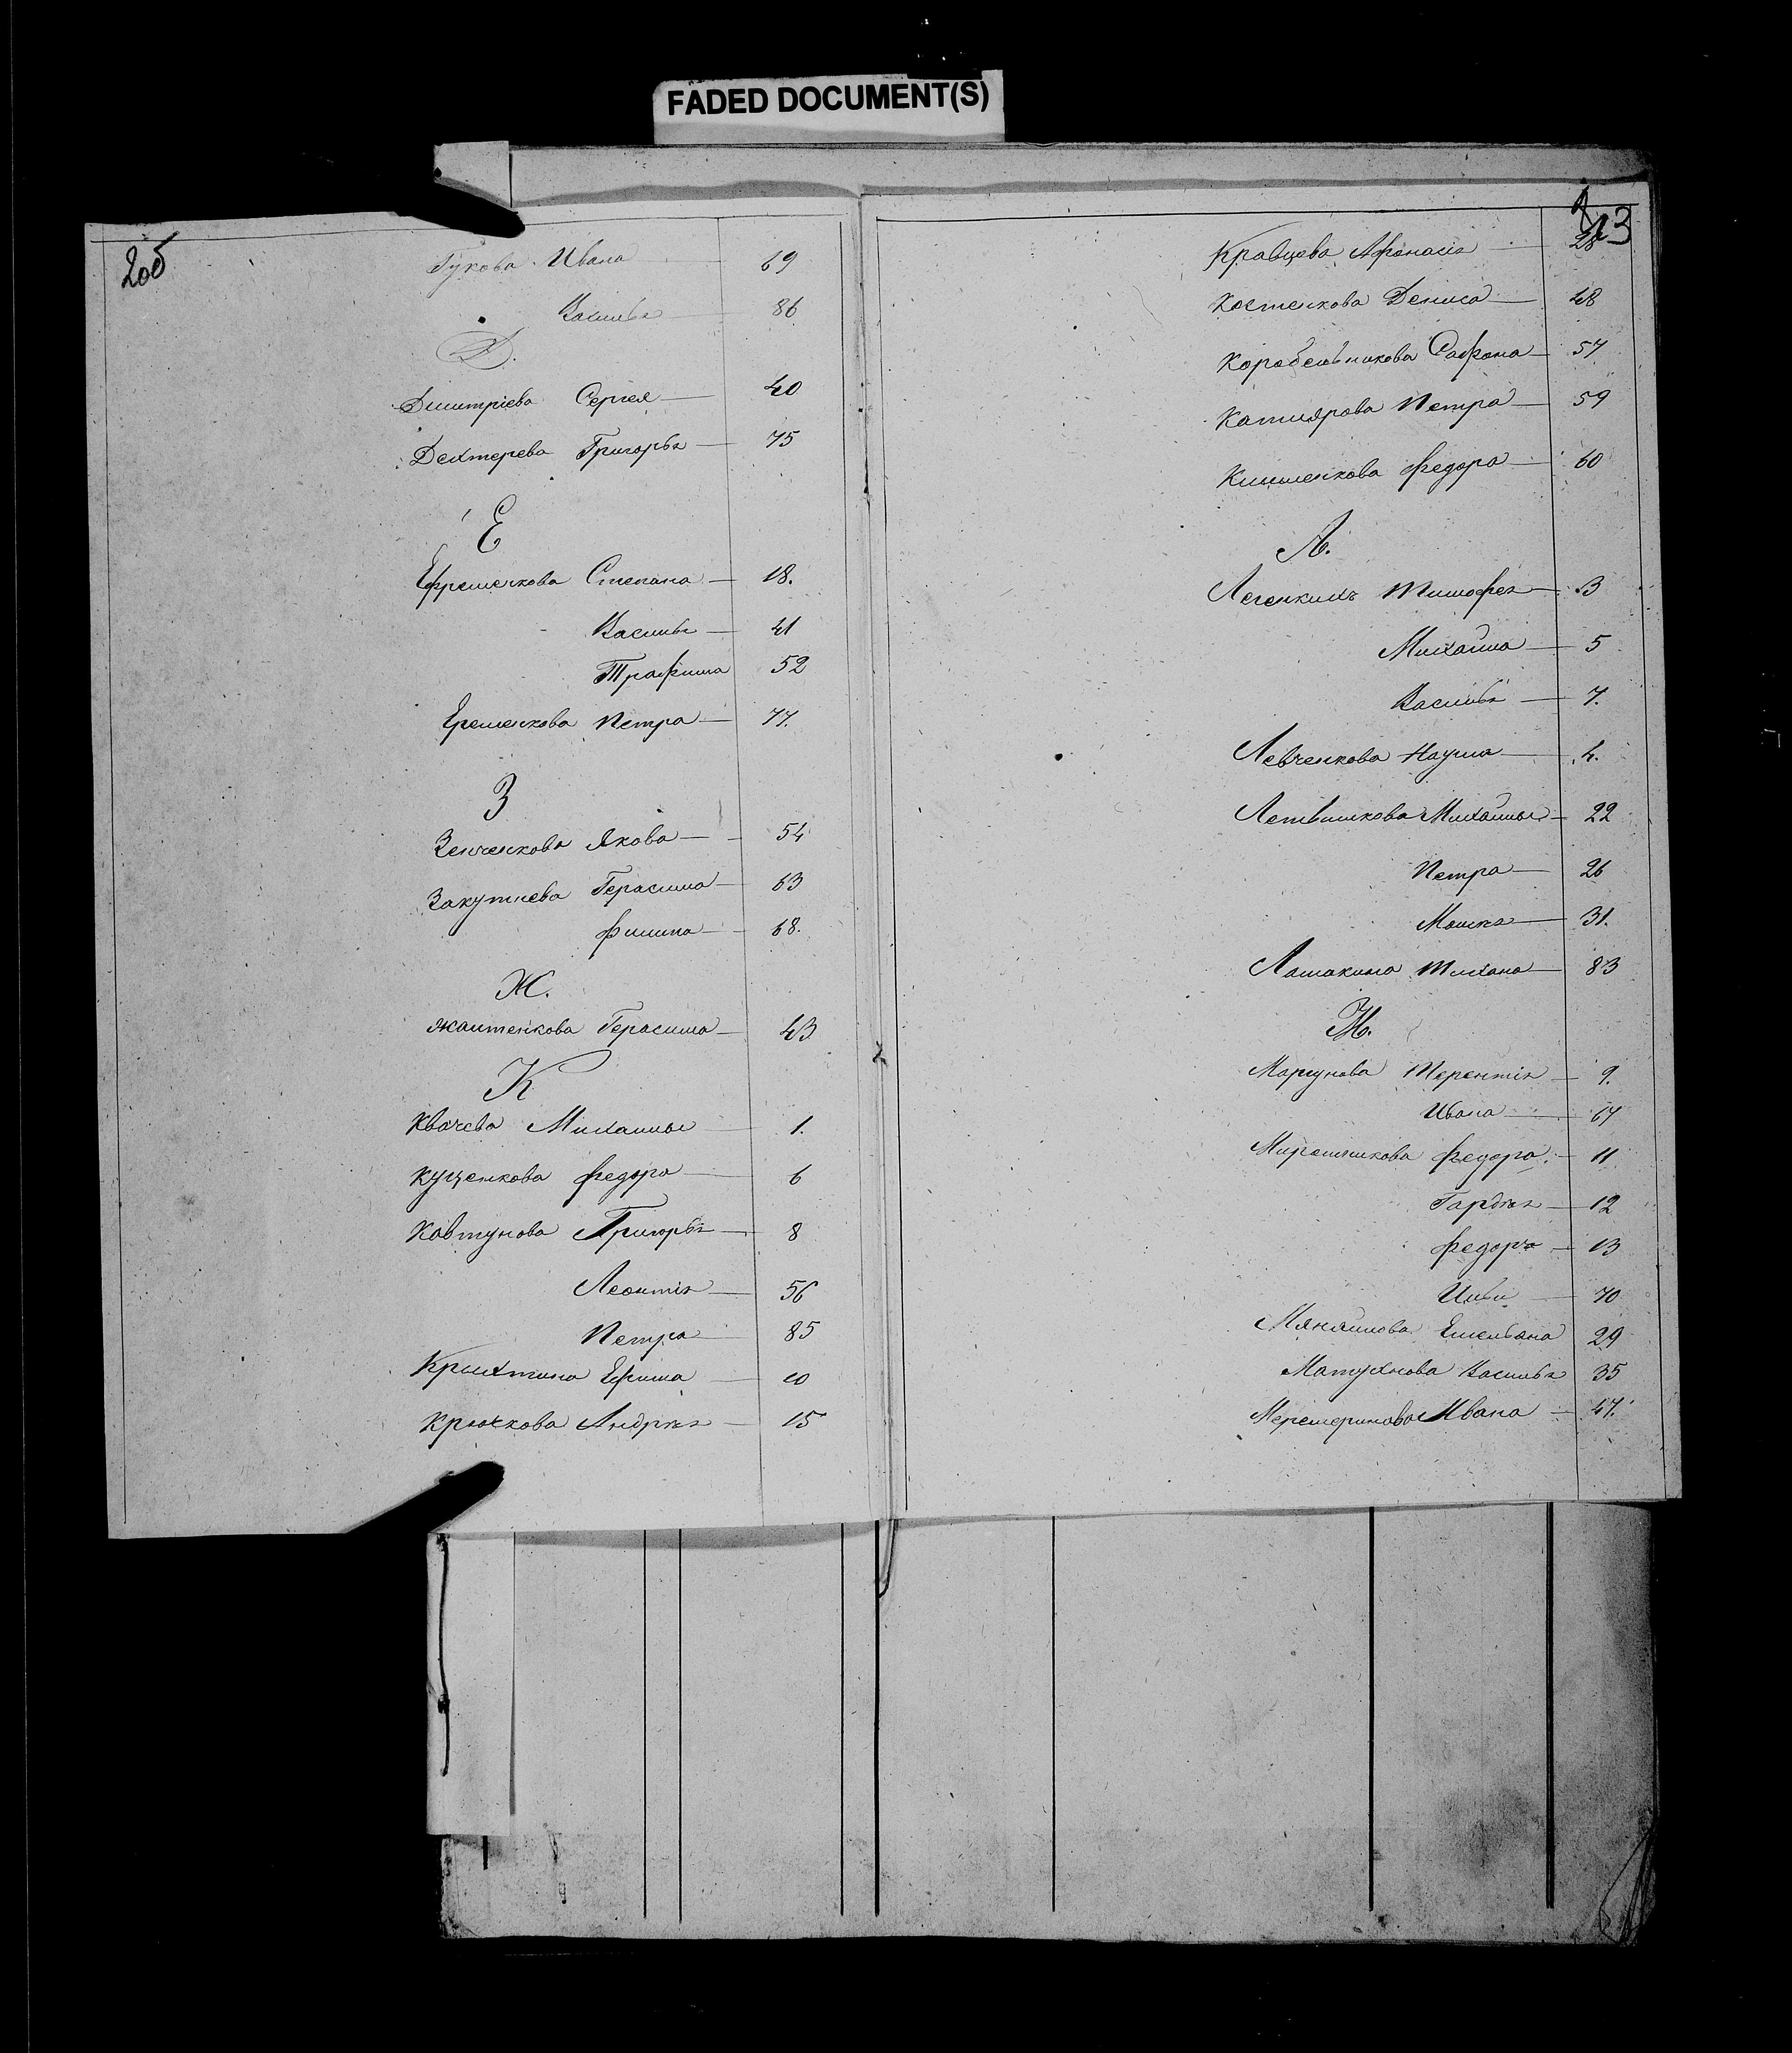 FADED DOCUMENT(S)
2об
Гукова Ивана — 69
Василья — 86
Д.
Дмитріева Сергея — 40
Дехтерева Григорья — 75
Е
Ефременкова Степана — 18.
Василья — 41
Трафима 52
Еременкова Петра — 77.
З
Зенченкова Якова — 54
Закутнева Герасима — 63
Филипа — 68.
Ж.
Герасима — 43
К
Квачева Михаилы — 1.
Куценкова Федора — 6
Ковтунова Григорья — 8
Леонтія — 56
Петра — 85
Ефима — 10
Крючкова Андрея — 15
3
Кравцова Афонасія — 28
Костенкова Дениса — 48
Корабельникова Сафона — 57
Катлярова Петра — 59
Клименкова Федора — 60
Л.
Легенкихъ Тимофея — 3
Михайла — 5
Василья — 7.
Левченкова Наума — 4.
Летвинкова Михайлы — 22
Петра — 26
31.
Лашакина Тихана — 83
М.
Моргунова Терентія — 9.
Ивана — 67
Мирошникова Федора — 11
Гардея — 12
Федора — 13
Ильи — 70
Емельяна 29
Матузнова Василья 35
Мерешеринова Ивана — 47.